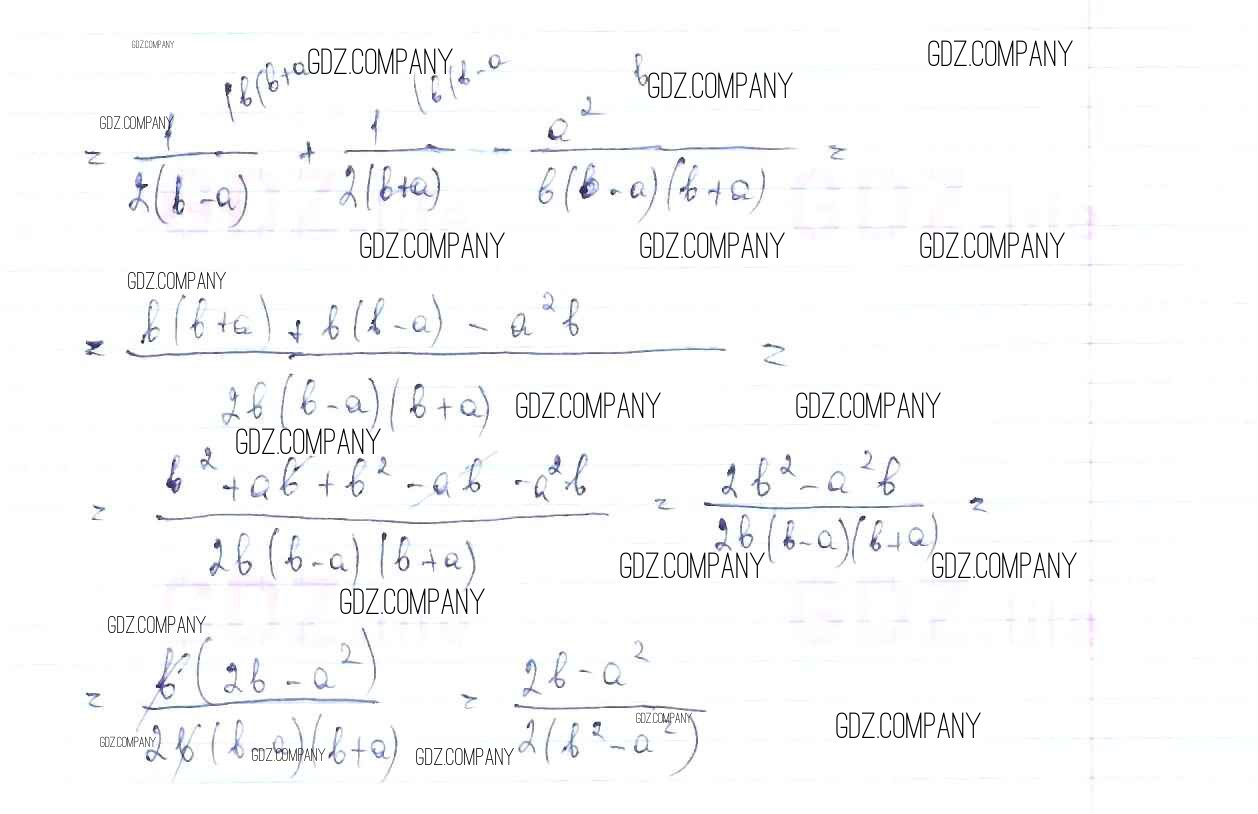 GDZ.COMPANY
GDZ.COMPANY GDZ.COMPANY GDZ.COMPANY
|b(b+a |b(b-a b
GDZ.COMPANY
= 1/2(b-a) + 1/2(b+a) - a²/b(b-a)(b+a) =
GDZ.COMPANY GDZ.COMPANY GDZ.COMPANY
GDZ.COMPANY
= b(b+a) + b(b-a) - a²b / 2b(b-a)(b+a) =
GDZ.COMPANY GDZ.COMPANY
GDZ.COMPANY
= b² + ab + b² - ab - a²b / 2b(b-a)(b+a) = 2b² - a²b / 2b(b-a)(b+a) =
GDZ.COMPANY GDZ.COMPANY
GDZ.COMPANY
GDZ.COMPANY
= b(2b - a²) / 2b(b-a)(b+a) = 2b - a² / 2(b² - a²)
GDZ.COMPANY GDZ.COMPANY
GDZ.COMPANY GDZ.COMPANY GDZ.COMPANY